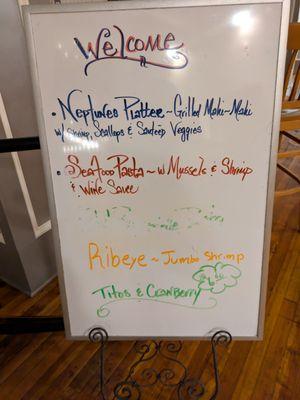 Welcome
• Neptunes Platter ~ Grilled Mahi ~ Mahi
w/ Shrimp, Scallops & Sauteed Veggies
• Seafood Pasta ~ w/ Mussels & Shrimp
& Wine Sauce
Ribeye ~ Jumbo Shrimp
Titos & Cranberry
$6